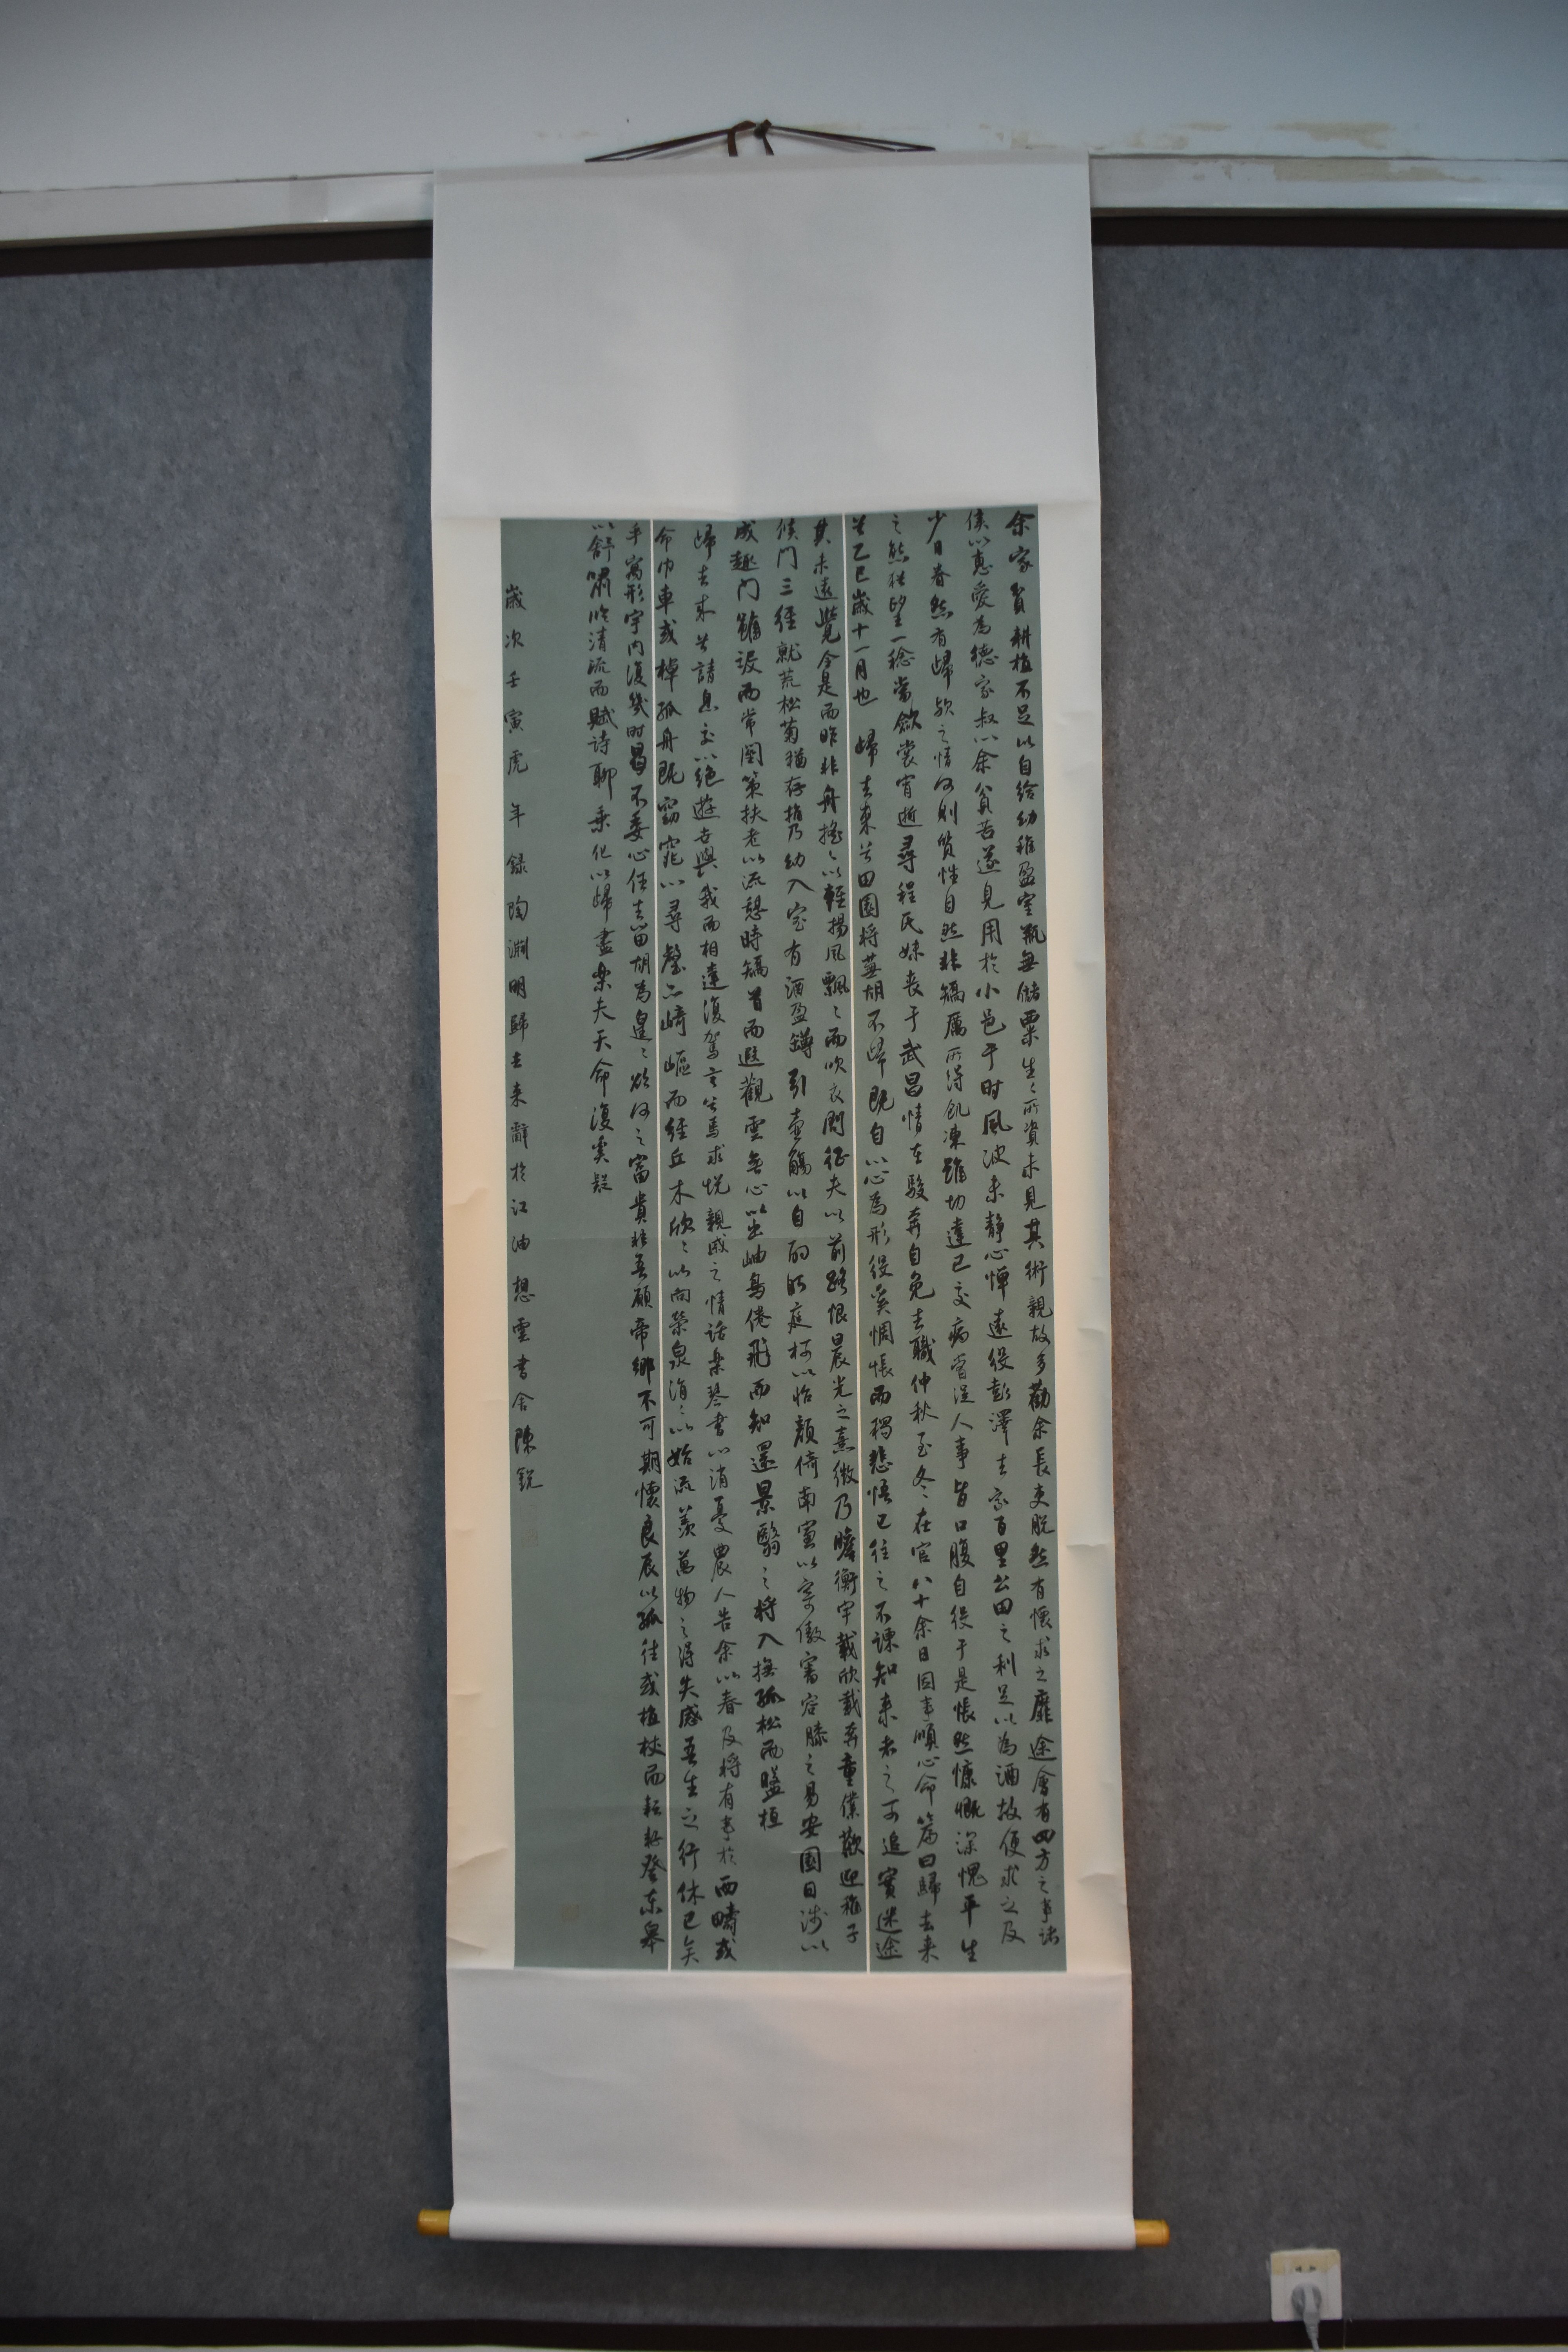 余家貧耕植不足以自給幼稚盈室瓶無儲粟生々所資未見其術親故多勸余長吏脫然有懷求之靡途會有四方之事諸
侯以惠愛為德家叔以余貧苦遂見用於小邑于时風波未靜心惮遠役彭澤去家百里公田之利足以為酒故便求之及
少日眷然有歸欤之情何则質性自然非矯厲所得飢凍雖切違已交病嘗従人事皆口腹自役于是悵然慷慨深愧平生
之然猶望一稔當斂裳宵逝尋程氏妹丧于武昌情在駿奔自免去職仲秋至冬在官八十余日因事順心命篇曰歸去来
兮乙巳歲十一月也 歸去来兮田園将蕪胡不歸既自以心為形役奚惆悵而獨悲悟已往之不諫知来者之可追實迷途
其未遠覺今是而昨非舟搖々以輕揚风飄々而吹衣問征夫以前路恨晨光之熹微乃瞻衡宇載欣載奔童僕歡迎稚子
候门三徑就荒松菊猶存携幼入室有酒盈罇引壺觴以自酌眄庭柯以怡顏倚南窗以寄傲審容膝之易安園日涉以
成趣门雖設而常關策扶老以流憩時矯首而遐觀雲無心以出岫鳥倦飛而知還景翳々将入撫孤松而盤桓
歸去来兮請息交以绝遊去與我而相違復駕言兮焉求悦親戚之情话樂琴書以消憂農人告余以春及将有事於西疇或
命巾車或棹孤舟既窈窕以尋壑亦崎嶇而經丘木欣々以向榮泉涓々以始流羡萬物之得失感吾生之行休已矣
乎寓形宇内復幾时曷不委心任去留胡為遑々欲何之富貴非吾願帝鄉不可期懷良辰以孤往或植杖而耘耔登東皋
以舒嘯临清流而賦诗聊乘化以歸盡樂夫天命復奚疑
歲次壬寅虎年錄陶淵明歸去来辭於江油想雲書舍陳锐